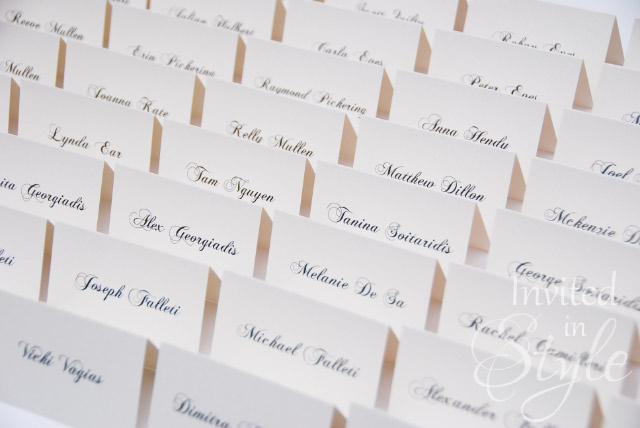 Reeve Mullen
Mullen
Erin Pickering
Carla Enes
Peter Enes
Joanna Kate
Raymond Pickering
Anna Hendy
Lynda Ear
Kelly Mullen
Matthew Dillon
Joel
Georgiadis
Tam Nguyen
Tanina Soitaridis
Mckenzie
Alex Georgiadis
Melanie De Sa
George
Joseph Falleti
Michael Falleti
Rachel
Vicki Vagias
Dimitra
Alexander
Invited
in
Style